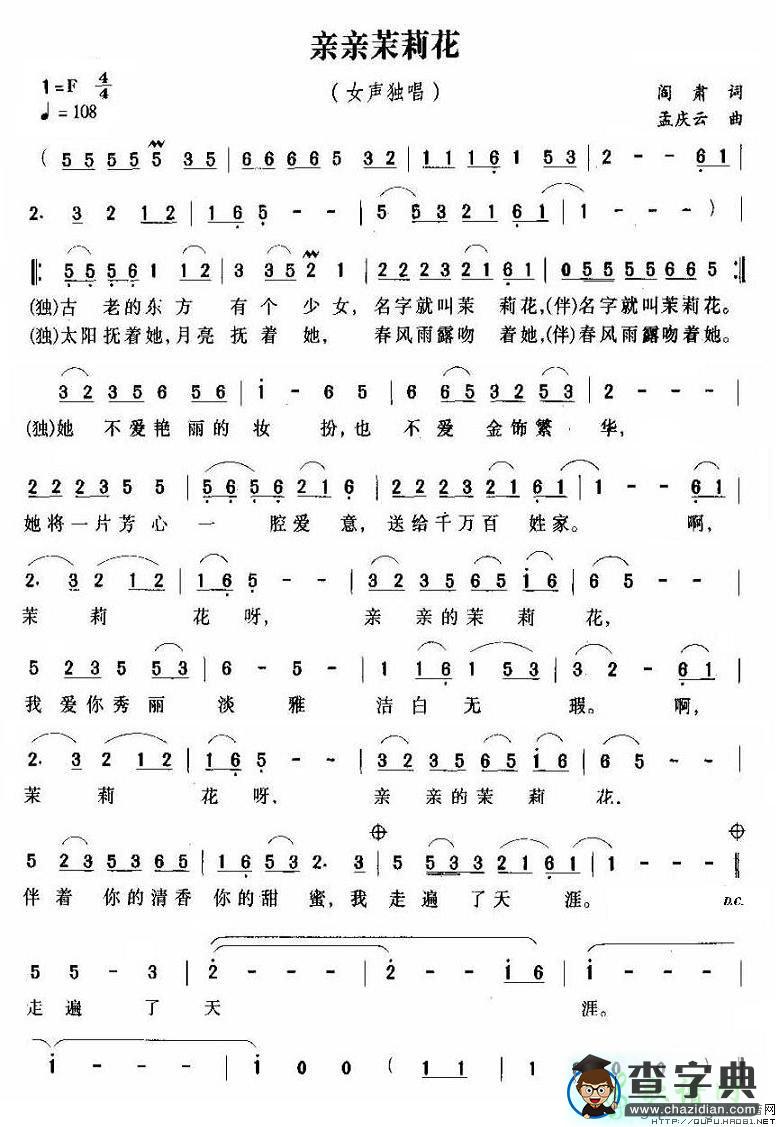 亲亲茉莉花
1=F 4/4
(女声独唱)
阎肃 词
♩=108
孟庆云 曲
( 5 5 5 5 5 3 5 | 6 6 6 6 5 3 2 | 1 1 1 6 1 5 3 | 2 - - 6 1 |
2. 3 2 1 2 | 1 6 5 - - | 5 5 3 2 1 6 1 | 1 - - - ) |
‖: 5 5 5 6 1 1 2 | 3 3 5 2 1 | 2 2 2 3 2 1 6 1 | 0 5 5 5 5 6 6 5 :‖
(独)古 老的东方 有个 少女,名字就叫茉 莉花,(伴)名字就叫茉莉花。
(独)太阳抚着她,月亮 抚着 她, 春风雨露吻 着她,(伴)春风雨露吻着她。
3 2 3 5 6 5 6 | i - 6 5 | 6 6 5 3 2 5 3 | 2 - - - |
(独)她 不爱艳丽的妆 扮,也 不爱 金饰繁 华,
2 2 2 3 5 5 | 5 6 5 6 2 1 6 | 2 2 2 3 2 1 6 1 | 1 - - 6 1 |
她将一片芳心一 腔爱意,送给千万百 姓家。 啊,
2. 3 2 1 2 | 1 6 5 - - | 3 2 3 5 6 5 i 6 | 5 - - - |
茉 莉 花 呀, 亲 亲的茉 莉 花,
5 2 3 5 5 3 | 6 - 5 - | 1 1 6 1 5 3 | 3 2 - 6 1 |
我 爱你秀丽 淡 雅 洁白无 瑕。 啊,
2. 3 2 1 2 | 1 6 5 - - | 3 2 3 5 6 5 i 6 | 6 5 - - |
茉 莉 花呀, 亲 亲的茉 莉 花,
5 2 3 5 3 6 5 | 1 6 5 3 2. 3 | 5 5 3 3 2 1 6 1 | 1 - - ‖
伴着 你的清香 你的甜 蜜,我 走遍 了天 涯。 D.C.
5 5 - 3 | 2 - - - | 2 - - i 6 | i - - - |
走遍 了 天 涯。
i - - - | i 0 0 ( 1 1 | 1
查字典
www.chazidian.com